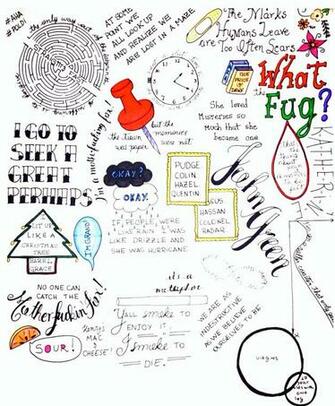 #AHA
#ROLM
the only way
maze is to
AT SOME
POINT WE
ALL LOOK UP
AND REALIZE WE
ARE LOST IN A MAZE
The Marks
Humans Leave
are Too Often Scars
What
the
Fug?
She loved
mysteries so
much that she
became one
but the
memories
were not
I GO TO
SEEK A
GREAT
PERHAPS
I'm a motherfucking fox!
OKAY?
OKAY.
PUDGE
COLIN
HAZEL
QUENTIN
GUS
HASSAN
COLONEL
RADAR
John Green
KATHERINE
IF PEOPLE WERE
RAIN I WAS
LIKE DRIZZLE AND
SHE WAS HURRICANE
LIT UP
LIKE A
CHRISTMAS
TREE
HAZEL
GRACE
I'M GRAND
NO ONE CAN
CATCH THE
Motherfuckin fox!
SOUR!
MAC
&
CHEESE!
it's a
metaphor
Y'all smoke to
ENJOY IT.
I smoke to
DIE.
WE ARE AS
INDESTRUCTIBLE
AS WE BELIEVE
OURSELVES TO BE
virgins